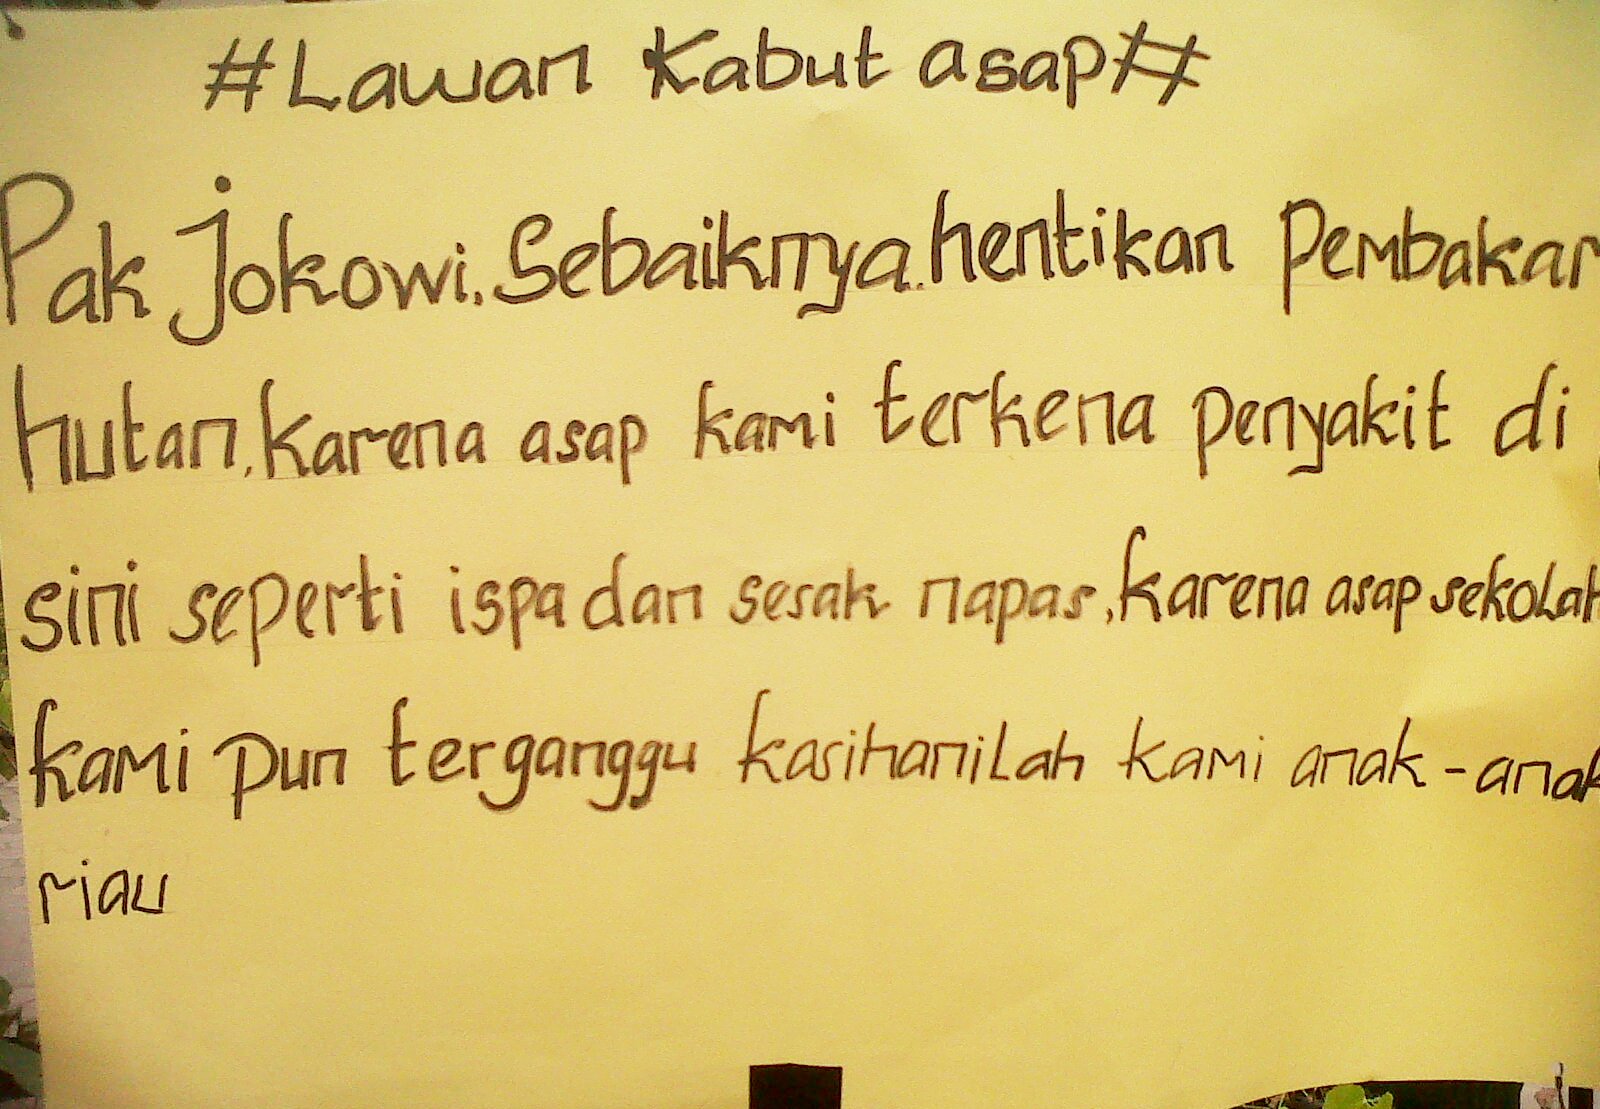 #Lawan Kabut asap#
Pak Jokowi. Sebaiknya. hentikan Pembakar
hutan, karena asap kami terkena penyakit di
sini seperti ispa dan sesak napas, karena asap sekolah
kami pun terganggu kasihanilah kami anak-anak
riau